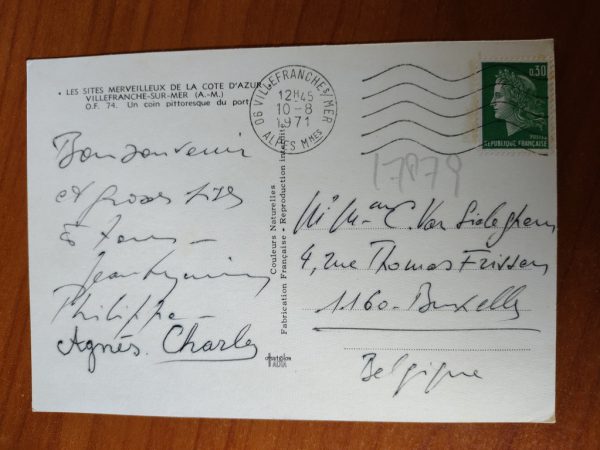 • LES SITES MERVEILLEUX DE LA COTE D'AZUR
VILLEFRANCHE-SUR-MER (A.-M.)
O.F. 74. Un coin pittoresque du port
06 VILLEFRANCHE S/MER
12H45
10-8
1971
ALPES MMES
0,30
POSTES
REPUBLIQUE FRANÇAISE
17879
Bon souvenir
et grosses bises
à tous –
Philippe –
Agnès. Charles
Couleurs Naturelles
Fabrication Française • Reproduction interdite
C. Van
4, rue Thomas Frissen
1160 – Bruxelles
Belgique